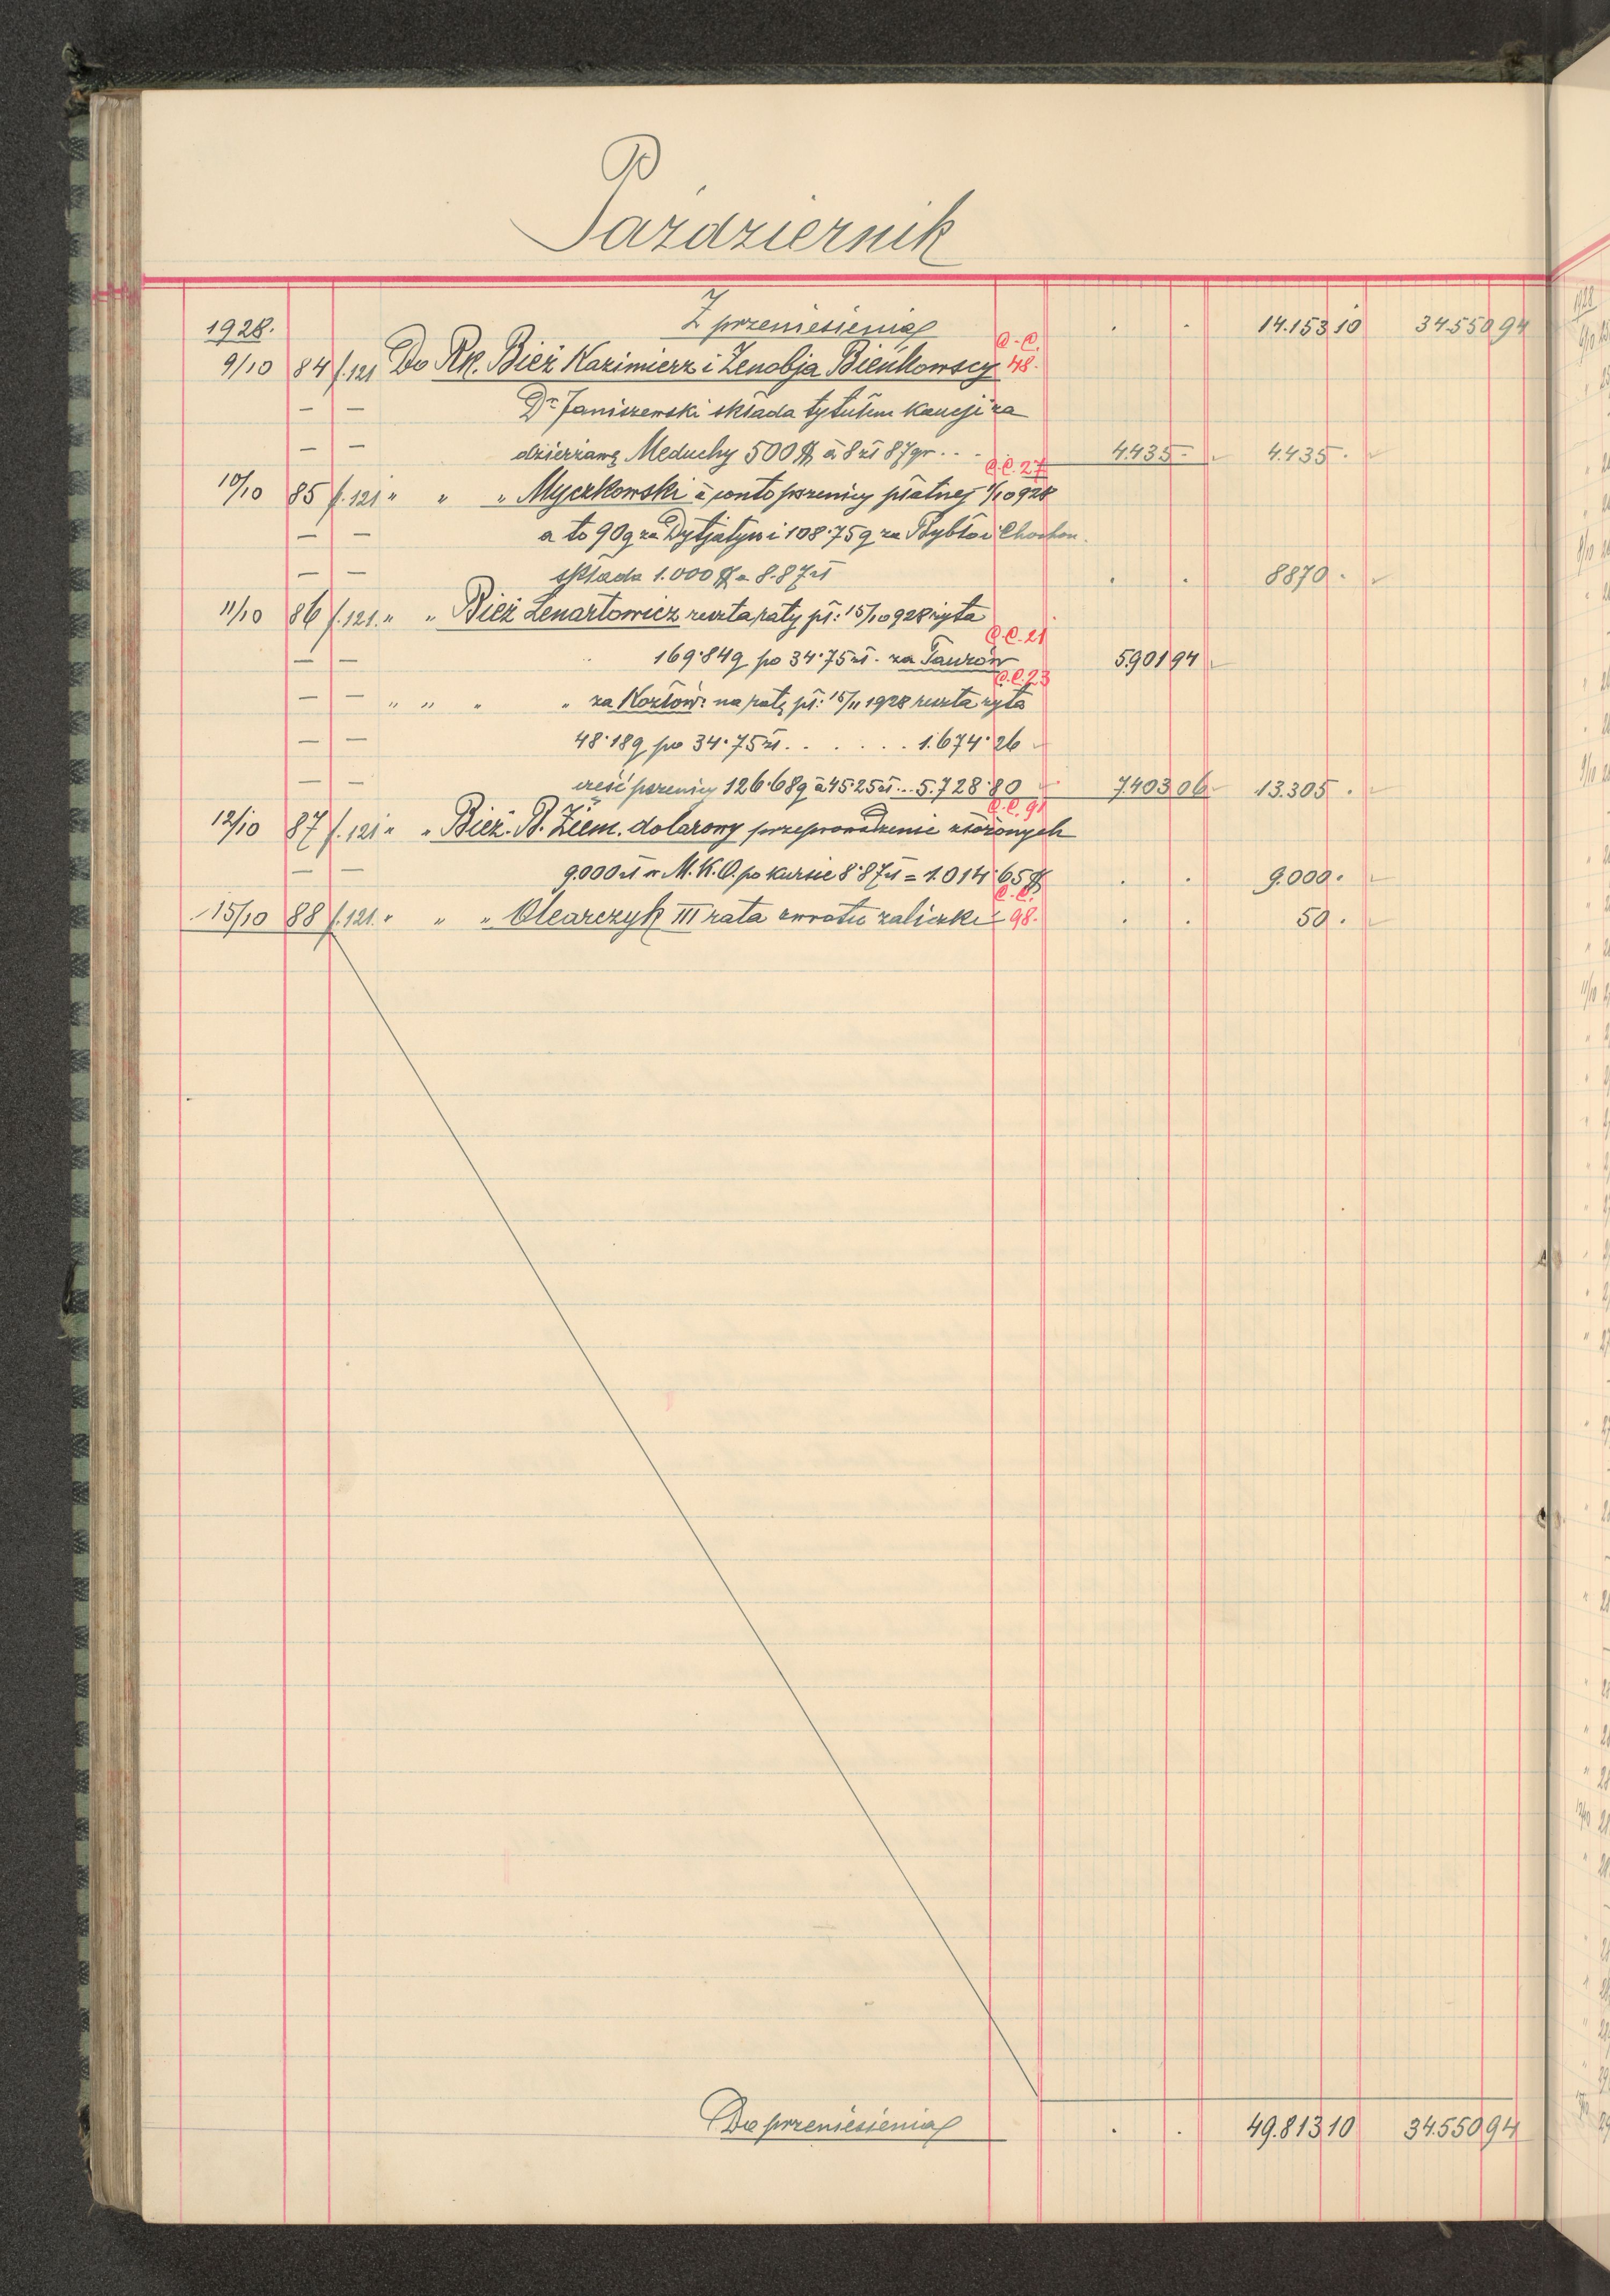 Październik
1928. Z przeniesienia . . 14.153 10 34550 94
9/10 84 f.121 Do Rk. Bież Kazimierz i Zenobja Bieńkowscy C.C. 48.
— — Dr Janiszewski składa tytułem kaucji za
— — dzierżawę Meduchy 500 $ à 8 zł 87 gr . . . 4435 - 4.435 .
10/10 85 f.121 " " " Myczkowski à conto pszenicy płatnej 1/10 928 C.C. 27
— — a to 90 q za Dytjatyn i 108.75 q za Bybło i Chochon.
— — składa 1.000 $ à 8.87 zł . . 8870 .
11/10 86 f.121. " " Bież Lenartowicz reszta raty pł: 15/10 928 żyta
— — 169.84 q po 34.75 zł . za Tauzów C.C. 21 5.901 94
— — " " " " za Kozłów: na ratę pł: 15/11 1928 reszta żyta C.C. 23
— — 48.18 q po 34.75 zł . . . . . . . 1.674.26
— — cześć pszenicy 126.68 q à 45.25 zł . . . 5.728.80 7.403 06 13.305 .
12/10 87 f.121 " " Bież. B. Ziem. dolarowy przeprowadzenie złożonych C.C. 91
— — 9.000 zł w M.K.O. po kursie 8.87 zł = 1.014.65 $ . . 9.000 .
15/10 88 f.121. " " " Olearczyk III rata zwrotu zaliczki C.C. 98. . . 50 .
Do przeniesienia . . 49.813 10 34.550 94